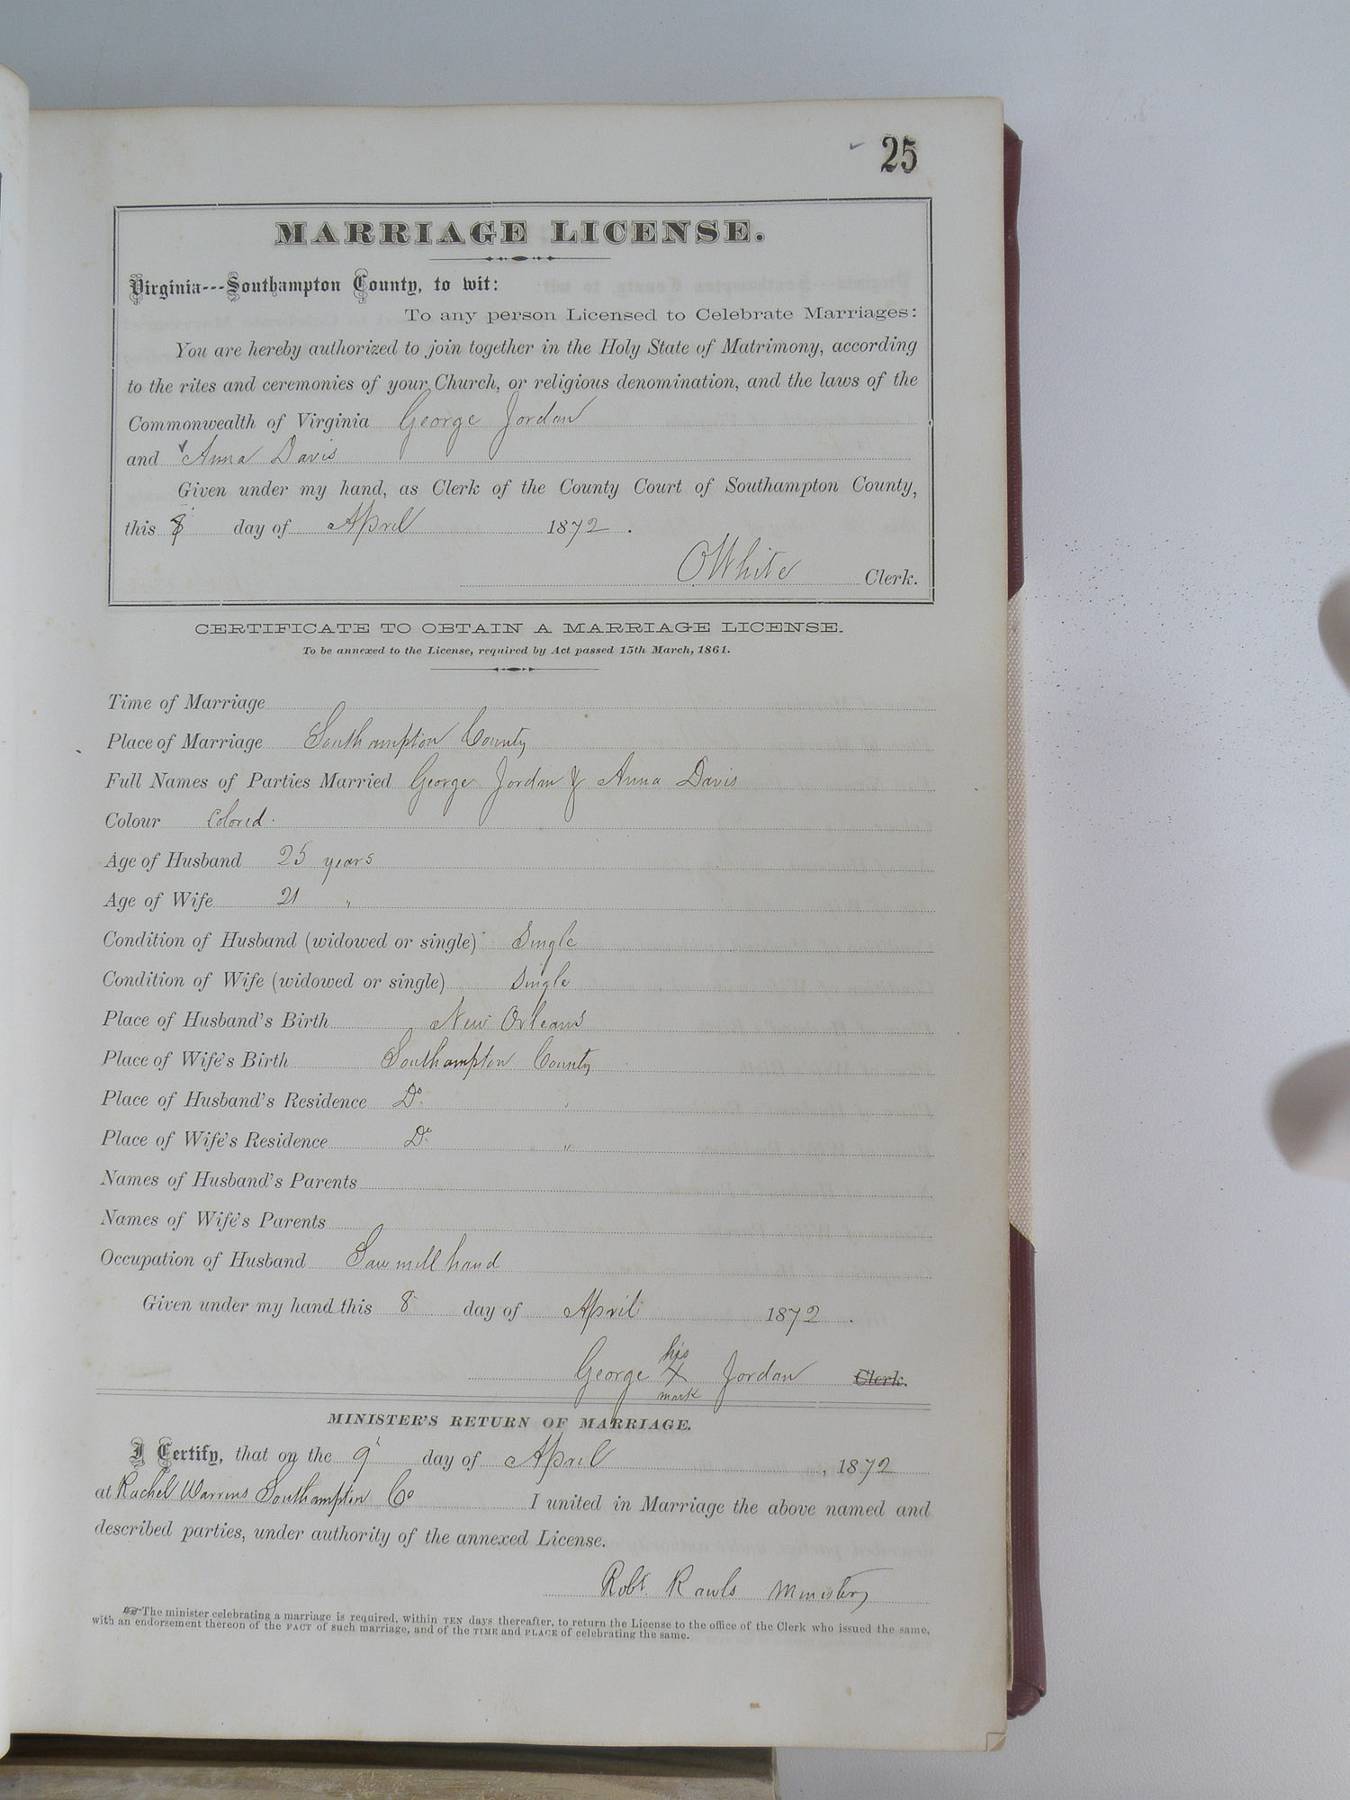 25
MARRIAGE LICENSE.
Virginia---Southampton County, to wit:
To any person Licensed to Celebrate Marriages:
You are hereby authorized to join together in the Holy State of Matrimony, according
to the rites and ceremonies of your Church, or religious denomination, and the laws of the
Commonwealth of Virginia George Jordan
and Anna Davis
Given under my hand, as Clerk of the County Court of Southampton County,
this 8 day of April 1872.
O White Clerk.
CERTIFICATE TO OBTAIN A MARRIAGE LICENSE.
To be annexed to the License, required by Act passed 15th March, 1861.
Time of Marriage
Place of Marriage Southampton County
Full Names of Parties Married George Jordan & Anna Davis
Colour Colored.
Age of Husband 25 years
Age of Wife 21 "
Condition of Husband (widowed or single) Single
Condition of Wife (widowed or single) Single
Place of Husband's Birth New Orleans
Place of Wife's Birth Southampton County
Place of Husband's Residence Do "
Place of Wife's Residence Do "
Names of Husband's Parents
Names of Wife's Parents
Occupation of Husband Saw mill hand
Given under my hand this 8 day of April 1872.
his
George X Jordan Clerk.
mark
MINISTER'S RETURN OF MARRIAGE.
I Certify, that on the 9 day of April, 1872
at Rachel Warrens Southampton Co I united in Marriage the above named and
described parties, under authority of the annexed License.
Robt. Rawls Minister
☞The minister celebrating a marriage is required, within TEN days thereafter, to return the License to the office of the Clerk who issued the same,
with an endorsement thereon of the FACT of such marriage, and of the TIME and PLACE of celebrating the same.